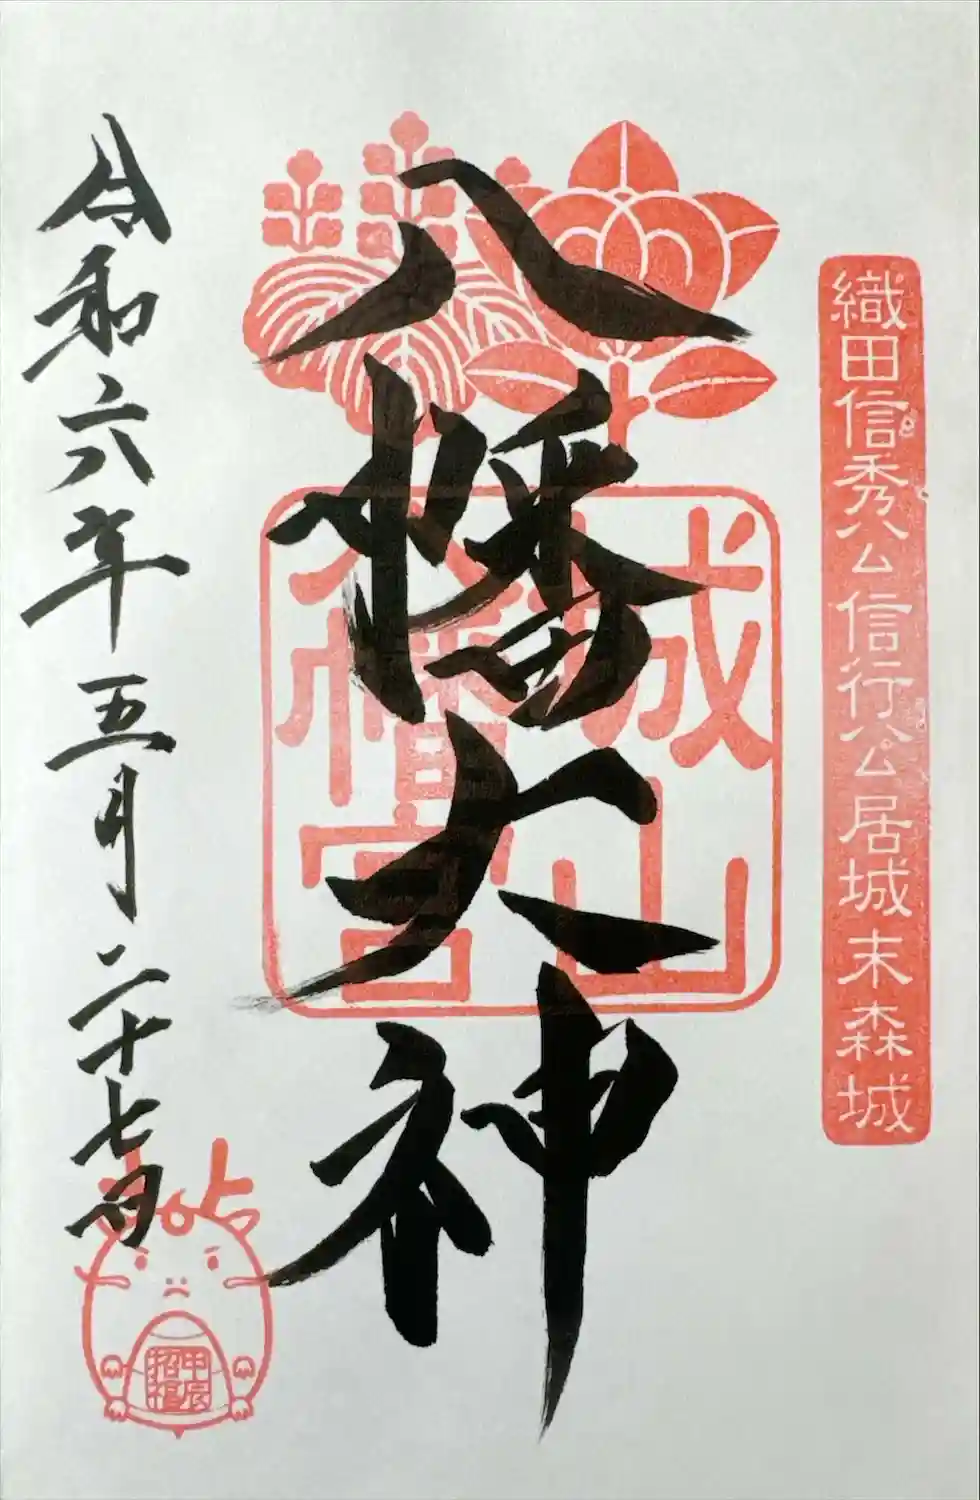 織田信秀公信行公居城末森城
八幡大神
城山
八幡宮
令和六年五月二十七日
甲辰
招福